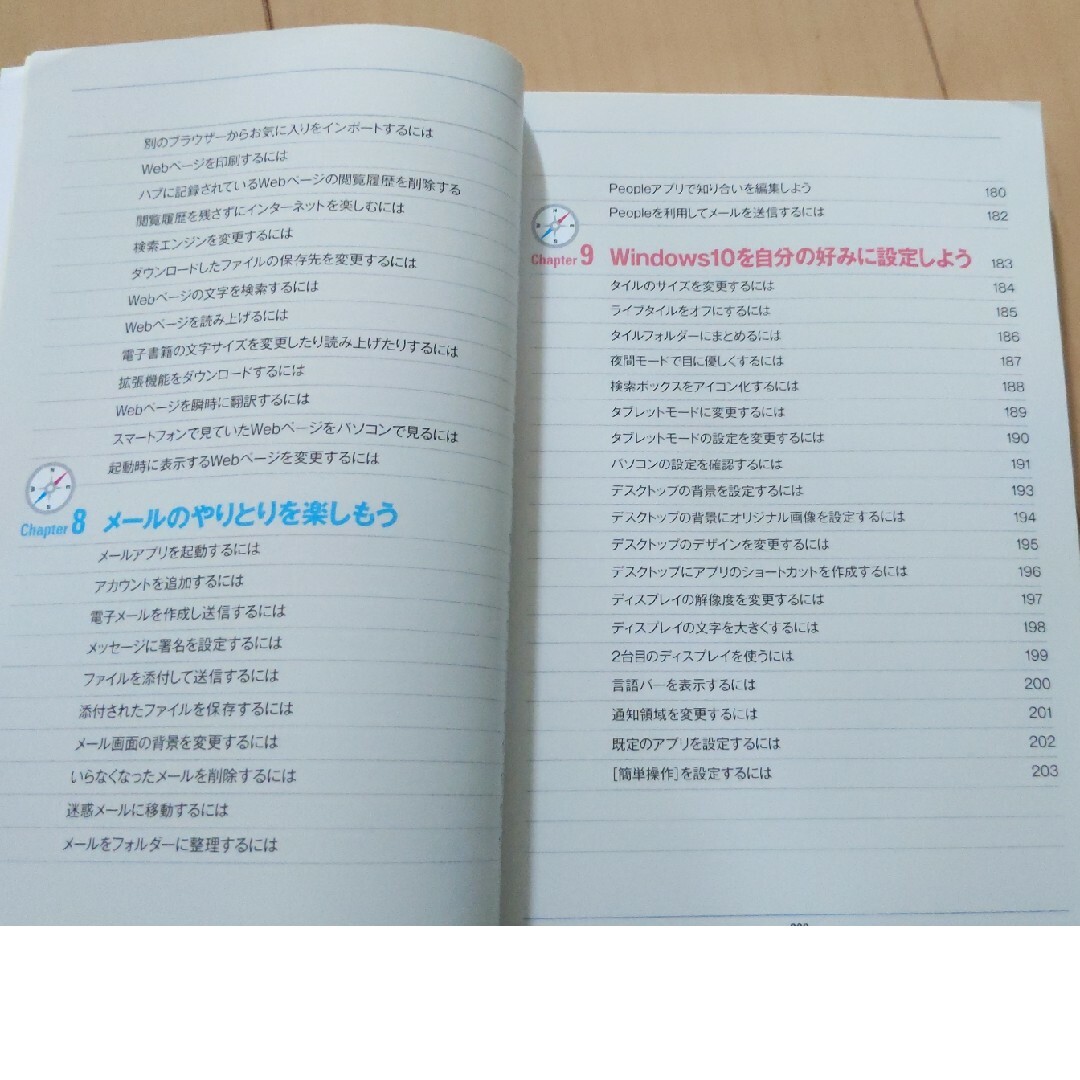 別のブラウザーからお気に入りをインポートするには
Webページを印刷するには
ハブに記録されているWebページの閲覧履歴を削除する
閲覧履歴を残さずにインターネットを楽しむには
検索エンジンを変更するには
ダウンロードしたファイルの保存先を変更するには
Webページの文字を検索するには
Webページを読み上げるには
電子書籍の文字サイズを変更したり読み上げたりするには
拡張機能をダウンロードするには
Webページを瞬時に翻訳するには
スマートフォンで見ていたWebページをパソコンで見るには
起動時に表示するWebページを変更するには
Chapter 8 メールのやりとりを楽しもう
メールアプリを起動するには
アカウントを追加するには
電子メールを作成し送信するには
メッセージに署名を設定するには
ファイルを添付して送信するには
添付されたファイルを保存するには
メール画面の背景を変更するには
いらなくなったメールを削除するには
迷惑メールに移動するには
メールをフォルダーに整理するには
Peopleアプリで知り合いを編集しよう 180
Peopleを利用してメールを送信するには 182
Chapter 9 Windows10を自分の好みに設定しよう 183
タイルのサイズを変更するには 184
ライブタイルをオフにするには 185
タイルフォルダーにまとめるには 186
夜間モードで目に優しくするには 187
検索ボックスをアイコン化するには 188
タブレットモードに変更するには 189
タブレットモードの設定を変更するには 190
パソコンの設定を確認するには 191
デスクトップの背景を設定するには 193
デスクトップの背景にオリジナル画像を設定するには 194
デスクトップのデザインを変更するには 195
デスクトップにアプリのショートカットを作成するには 196
ディスプレイの解像度を変更するには 197
ディスプレイの文字を大きくするには 198
2台目のディスプレイを使うには 199
言語バーを表示するには 200
通知領域を変更するには 201
既定のアプリを設定するには 202
[簡単操作]を設定するには 203